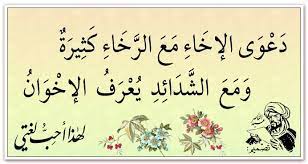 دَعْوَى الإخَاءِ مَعَ الرَّخَاءِ كَثِيرَةٌ
وَمَعَ الشَّدَائِدِ يُعْرَفُ الإخْوَانُ
لهذا أحب لغتي